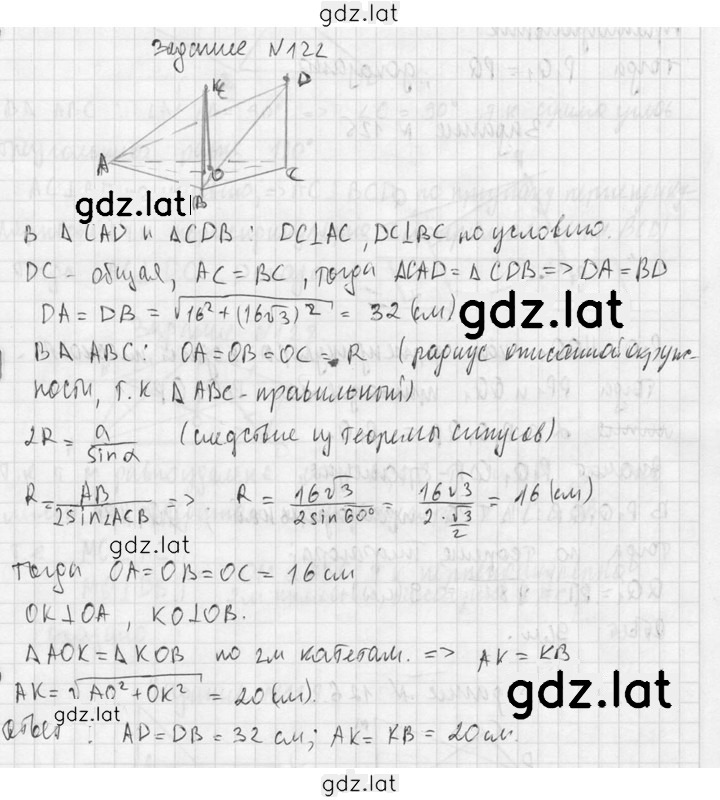 gdz.lat
Задание №122
K
D
A
O
C
B
gdz.lat
В △CAD и △CDB: DC⊥AC, DC⊥BC по условию.
DC - общая, AC = BC, тогда △CAD = △CDB => DA = BD
DA = DB = √16² + (16√3)² = 32 (см)
gdz.lat
В △ABC: OA = OB = OC = R (радиус описанной окруж-
ности, т.к △ABC - правильный)
gdz.lat
2R = a/sinα (следствие из теоремы синусов)
R = AB/2sin∠ACB => R = 16√3/2sin60° = 16√3/2·√3/2 = 16 (см)
gdz.lat
Тогда OA = OB = OC = 16 см
OK⊥OA, KO⊥OB.
△AOK = △KOB по 2м катетам. => AK = KB
AK = √AO² + OK² = 20 (см).
gdz.lat
gdz.lat
Ответ: AD = DB = 32 см; AK = KB = 20 см.
gdz.lat